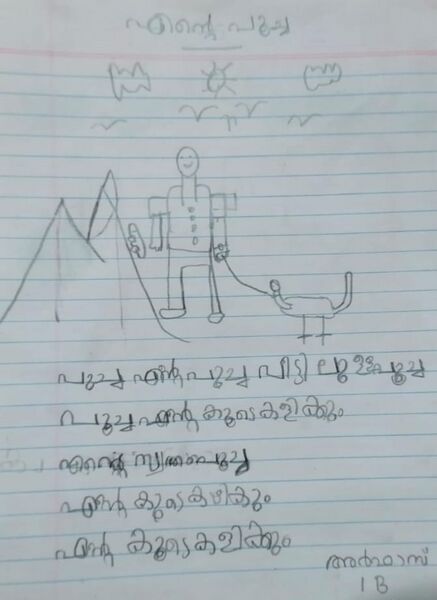 എന്റെ പൂച്ച
പൂച്ച എന്റെ പൂച്ച വീട്ടിലുള്ള പൂച്ച
പൂച്ച എന്റെ കൂടെ കളിക്കും
എന്റെ സ്വന്തം പൂച്ച
എന്റെ കൂടെ കഴിക്കും
എന്റെ കൂടെ കളിക്കും
1 B